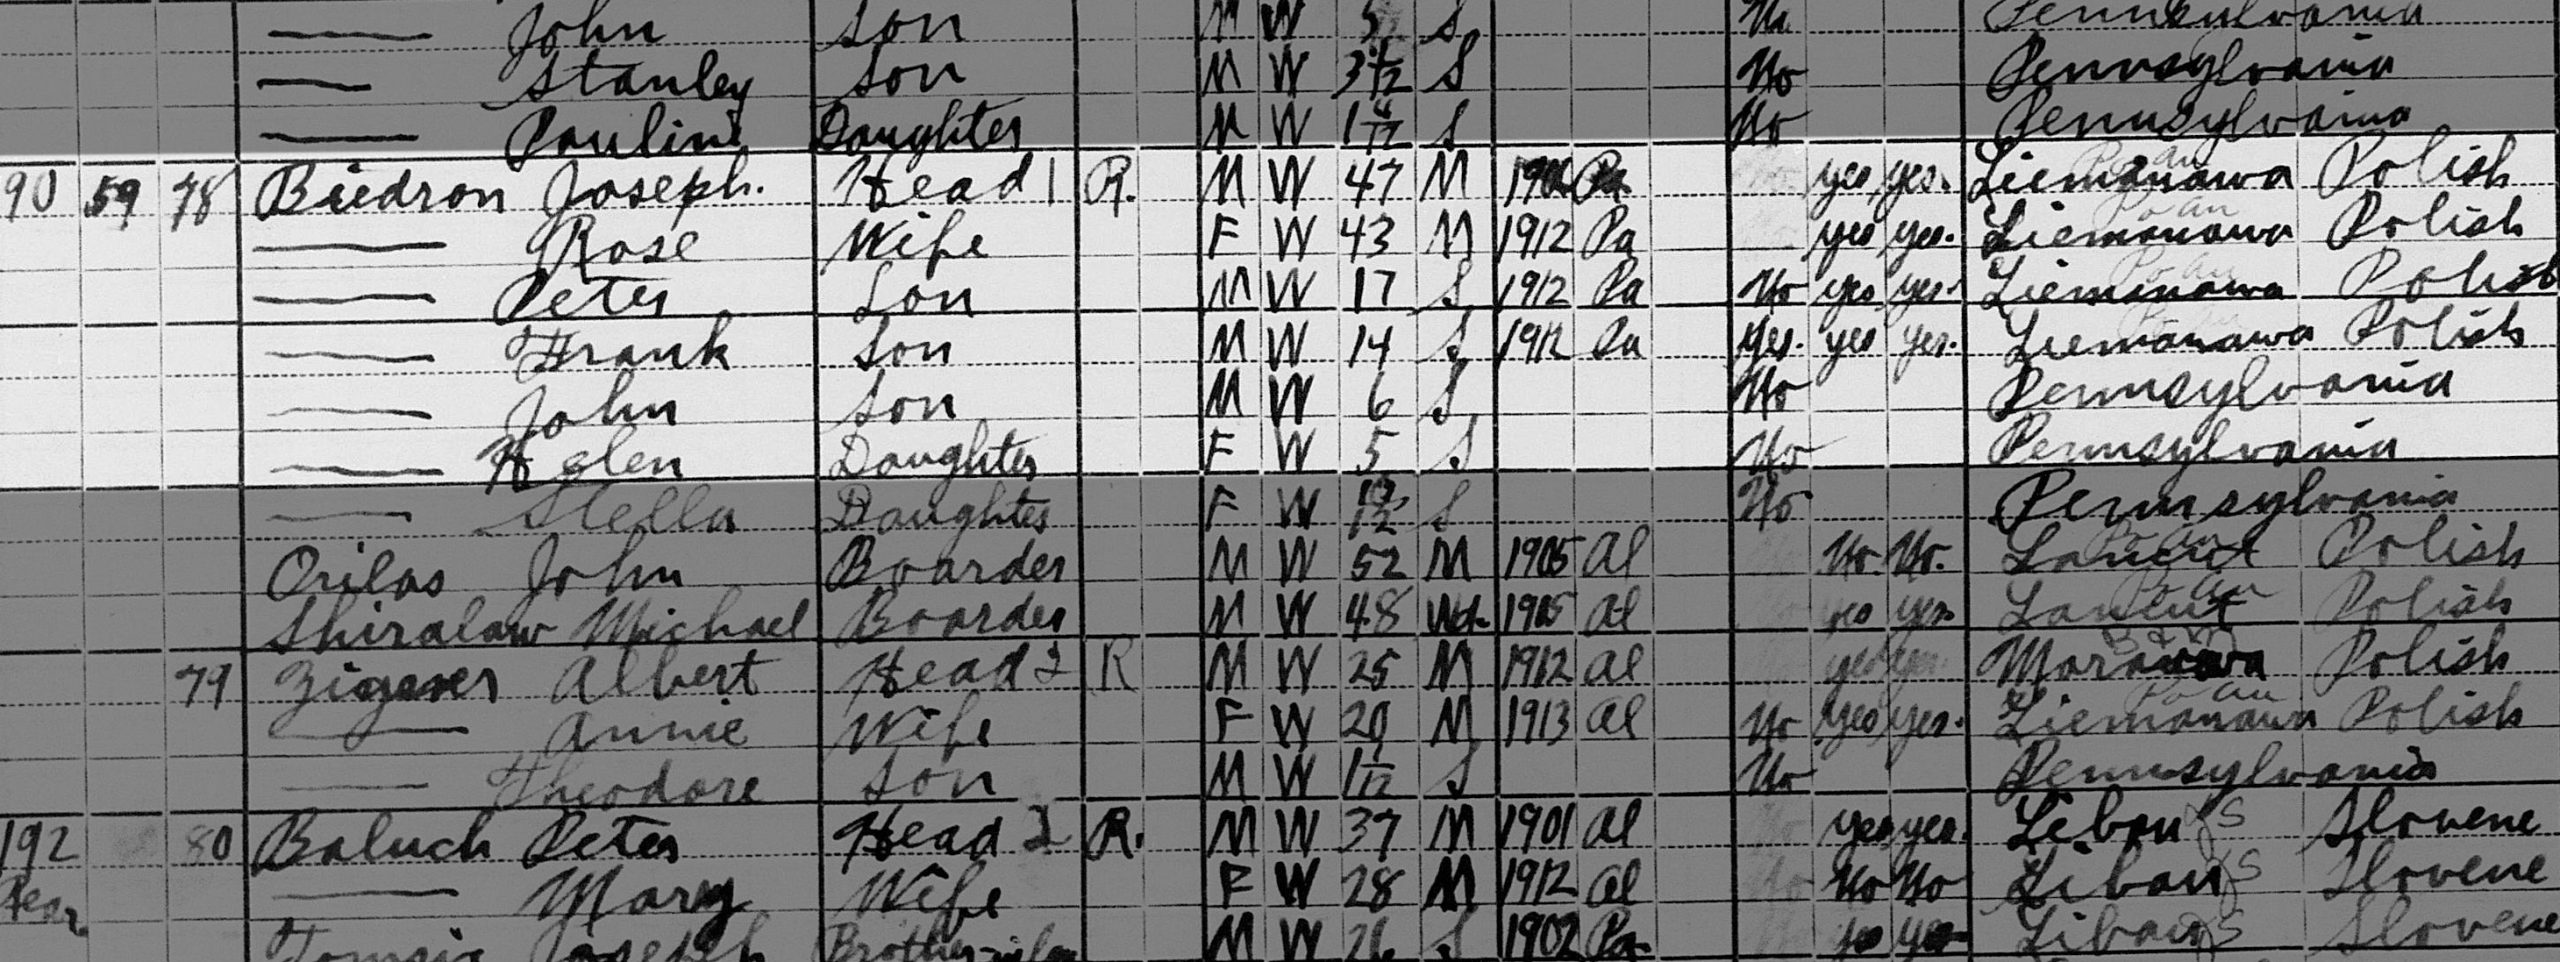 John Son M W 5 S No Pennsylvania
Stanley Son M W 3 4/12 S No Pennsylvania
Pauline Daughter M W 1 4/12 S No Pennsylvania
90 59 78 Biedron Joseph. Head 1 R. M W 47 M Pa yes yes. Liemanawa Polish
Rose Wife F W 43 M 1912 Pa yes yes. Liemanawa Polish
Peter Son M W 17 S 1912 Pa No yes yes. Liemanawa Polish
Frank Son M W 14 S 1912 Pa yes. yes yes. Liemanawa Polish
John Son M W 6 S No Pennsylvania
Helen Daughter F W 5 S No Pennsylvania
Stella Daughter F W S No Pennsylvania
Orilas John Boarder M W 52 M 1905 Al No. No. Polish
Shiralaw Michael Boarder M W 48 Wd. 1905 Al yes yes Polish
79 Albert Head 2 R M W 25 M 1912 Al yes yes Polish
Annie Wife F W 20 M 1913 Al No yes yes. Liemanawa Polish
Theodore Son M W S No Pennsylvania
192 80 Baluch Peter Head 2 R. M W 37 M 1901 Al yes yes. Liban Slovene
Rear. Mary Wife F W 28 M 1912 Al No No No Liban Slovene
Joseph Brother-in-law M W 26 S 1902 Pa yes yes Liban Slovene